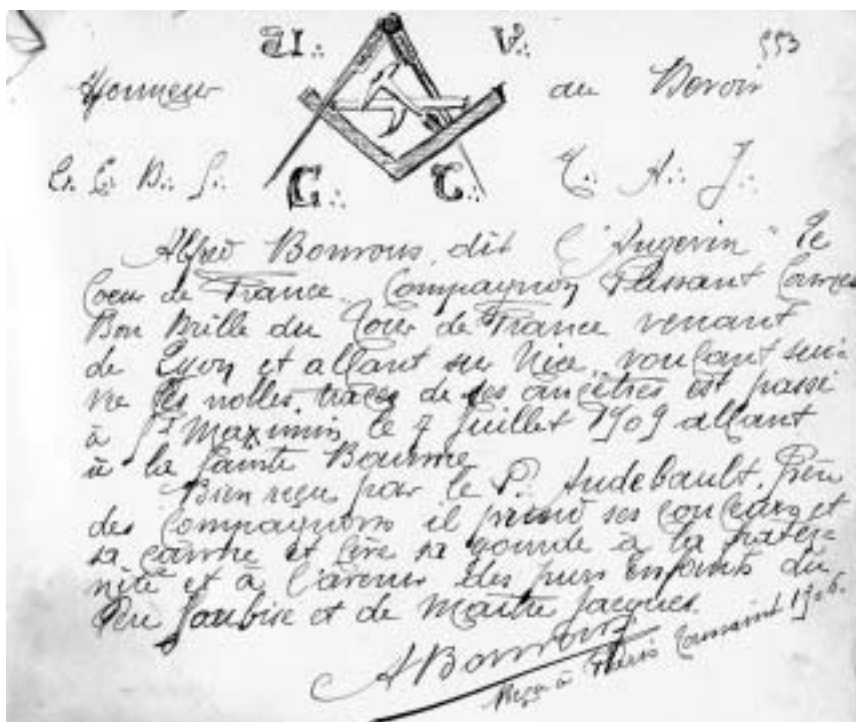 U∴ V∴ 553
Honneur au Devoir
C∴ C∴
A∴ J∴
Alfred Bonvous, dit l'Angevin le
Coeur de France. Compagnon Passant
Bon Drille du Tour de France venant
de Lyon et allant sur Nice, voulant sui-
vre les nolles traces de ses ancêtres est passé
à St Maximin le 7 Juillet 1909 allant
à la Sainte Baume
Bien reçu par le P. Audebault. Père
des Compagnons il prend ses couleurs et
sa canne et lève sa gourde à la frater=
nité et à l'avenir des purs Enfants du
Père Soubise et de Maître Jacques.
ABonvous
Reçu à Paris Toussaint 1906.